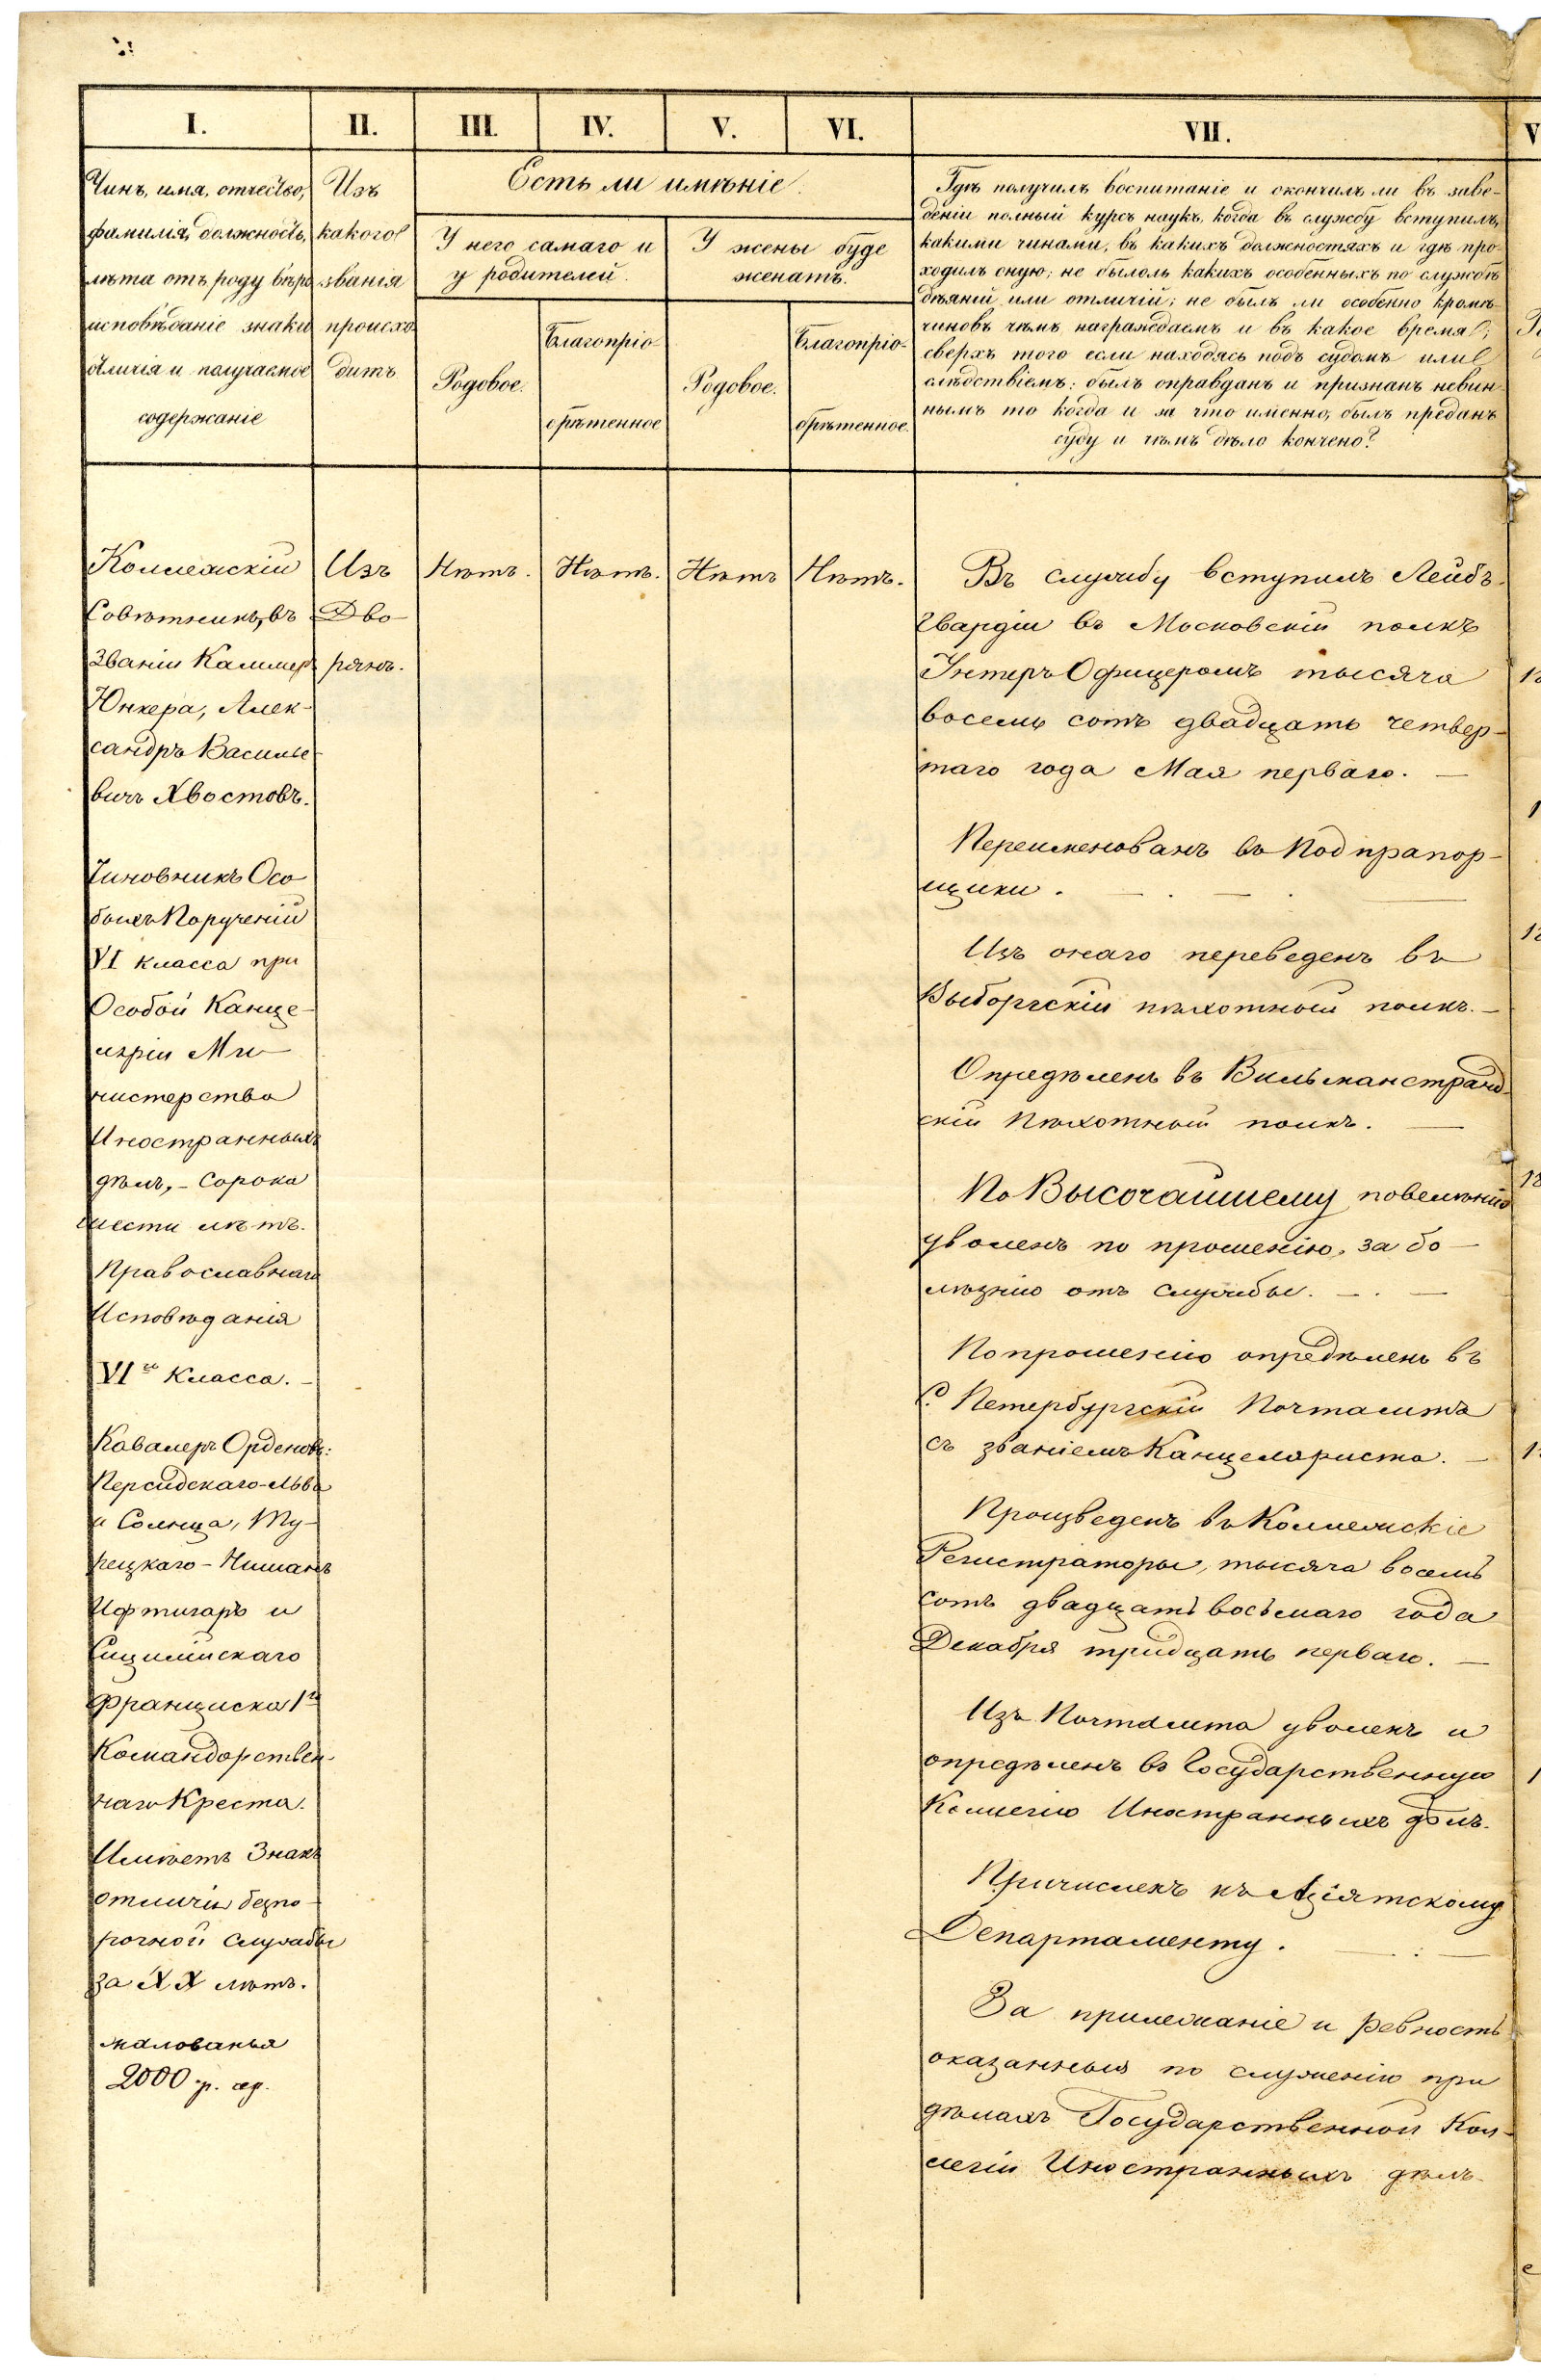 I.
II.
III.
IV.
V.
VI.
VII.
V
Чинъ, имя, отчество,
фамилія, должность,
лѣта отъ роду вѣро
исповѣданіе знаки
отличія и получаемое
содержаніе
Изъ
какого
званія
происхо
дитъ
Есть ли имѣніе.
У него самаго и
у родителей.
У жены буде
женатъ.
Родовое.
Благопріо-
брѣтенное
Родовое.
Благопріо-
брѣтенное.
Гдѣ получилъ воспитаніе и окончилъ ли въ заве-
деніи полный курсъ наукъ, когда въ службу вступилъ,
какими чинами, въ какихъ должностяхъ и гдѣ про-
ходилъ оную; не былоль какихъ особенныхъ по службѣ
дѣяній или отличій; не былъ ли особенно кромѣ
чиновъ чѣмъ награждаемъ и въ какое время;
сверхъ того если находясь подъ судомъ или
слѣдствіемъ: былъ оправданъ и признанъ невин-
нымъ то когда и за что именно, былъ преданъ
суду и чѣмъ дѣло кончено?
Коллежскій
Совѣтникъ, въ
Званіи Каммеръ
Юнкера, Алек-
сандръ Василье-
вичъ Хвостовъ.
Чиновникъ Осо
быхъ Порученій
VI класса при
Особой Канце-
ляріи Ми-
нистерства
Иностранныхъ
дѣлъ, - Сорока
шести лѣтъ.
Православнаго
Исповѣданія
VI го Класса. -
Кавалеръ Орденовъ:
Персидскаго-Льва
и Солнца, Ту-
рецкаго - Нишанъ
Ифтигаръ и
Сицилійскаго
Франциска 1го
Командорствен-
наго Креста.
Имѣетъ Знакъ
отличія безпо-
рочной службы
за XX лѣтъ.
жалованья
2000 р. сер.
Изъ
Дво-
рянъ.
Нѣтъ.
Нѣтъ.
Нѣтъ
Нѣтъ.
Въ службу вступилъ Лейбъ-
Гвардіи въ Московскій полкъ
Унтеръ Офицеромъ тысяча
восемь сотъ двадцать четвер-
таго года Мая перваго. -
Переименованъ въ Подпрапор-
щики.
Изъ онаго переведенъ въ
Выборгскій пѣхотный полкъ. -
Опредѣленъ въ Вильманстранд-
скій Пѣхотный полкъ. -
По Высочайшему повелѣнію
уволенъ по прошенію, за бо-
лѣзнію отъ службы. - . -
По прошенію опредѣленъ въ
С. Петербургскій Почтамтъ
съ званіемъ Канцеляриста. -
Произведенъ въ Коллежскіе
Регистраторы, тысяча восемь
сотъ двадцать восьмаго года
Декабря тридцать перваго. -
Изъ Почтамта уволенъ и
опредѣленъ въ Государственную
Коллегію Иностранныхъ дѣлъ.
Причисленъ къ Азіятскому
Департаменту.
За прилежаніе и ревность
оказанныя по служенію при
дѣлахъ Государственной Кол-
легіи Иностранныхъ дѣлъ